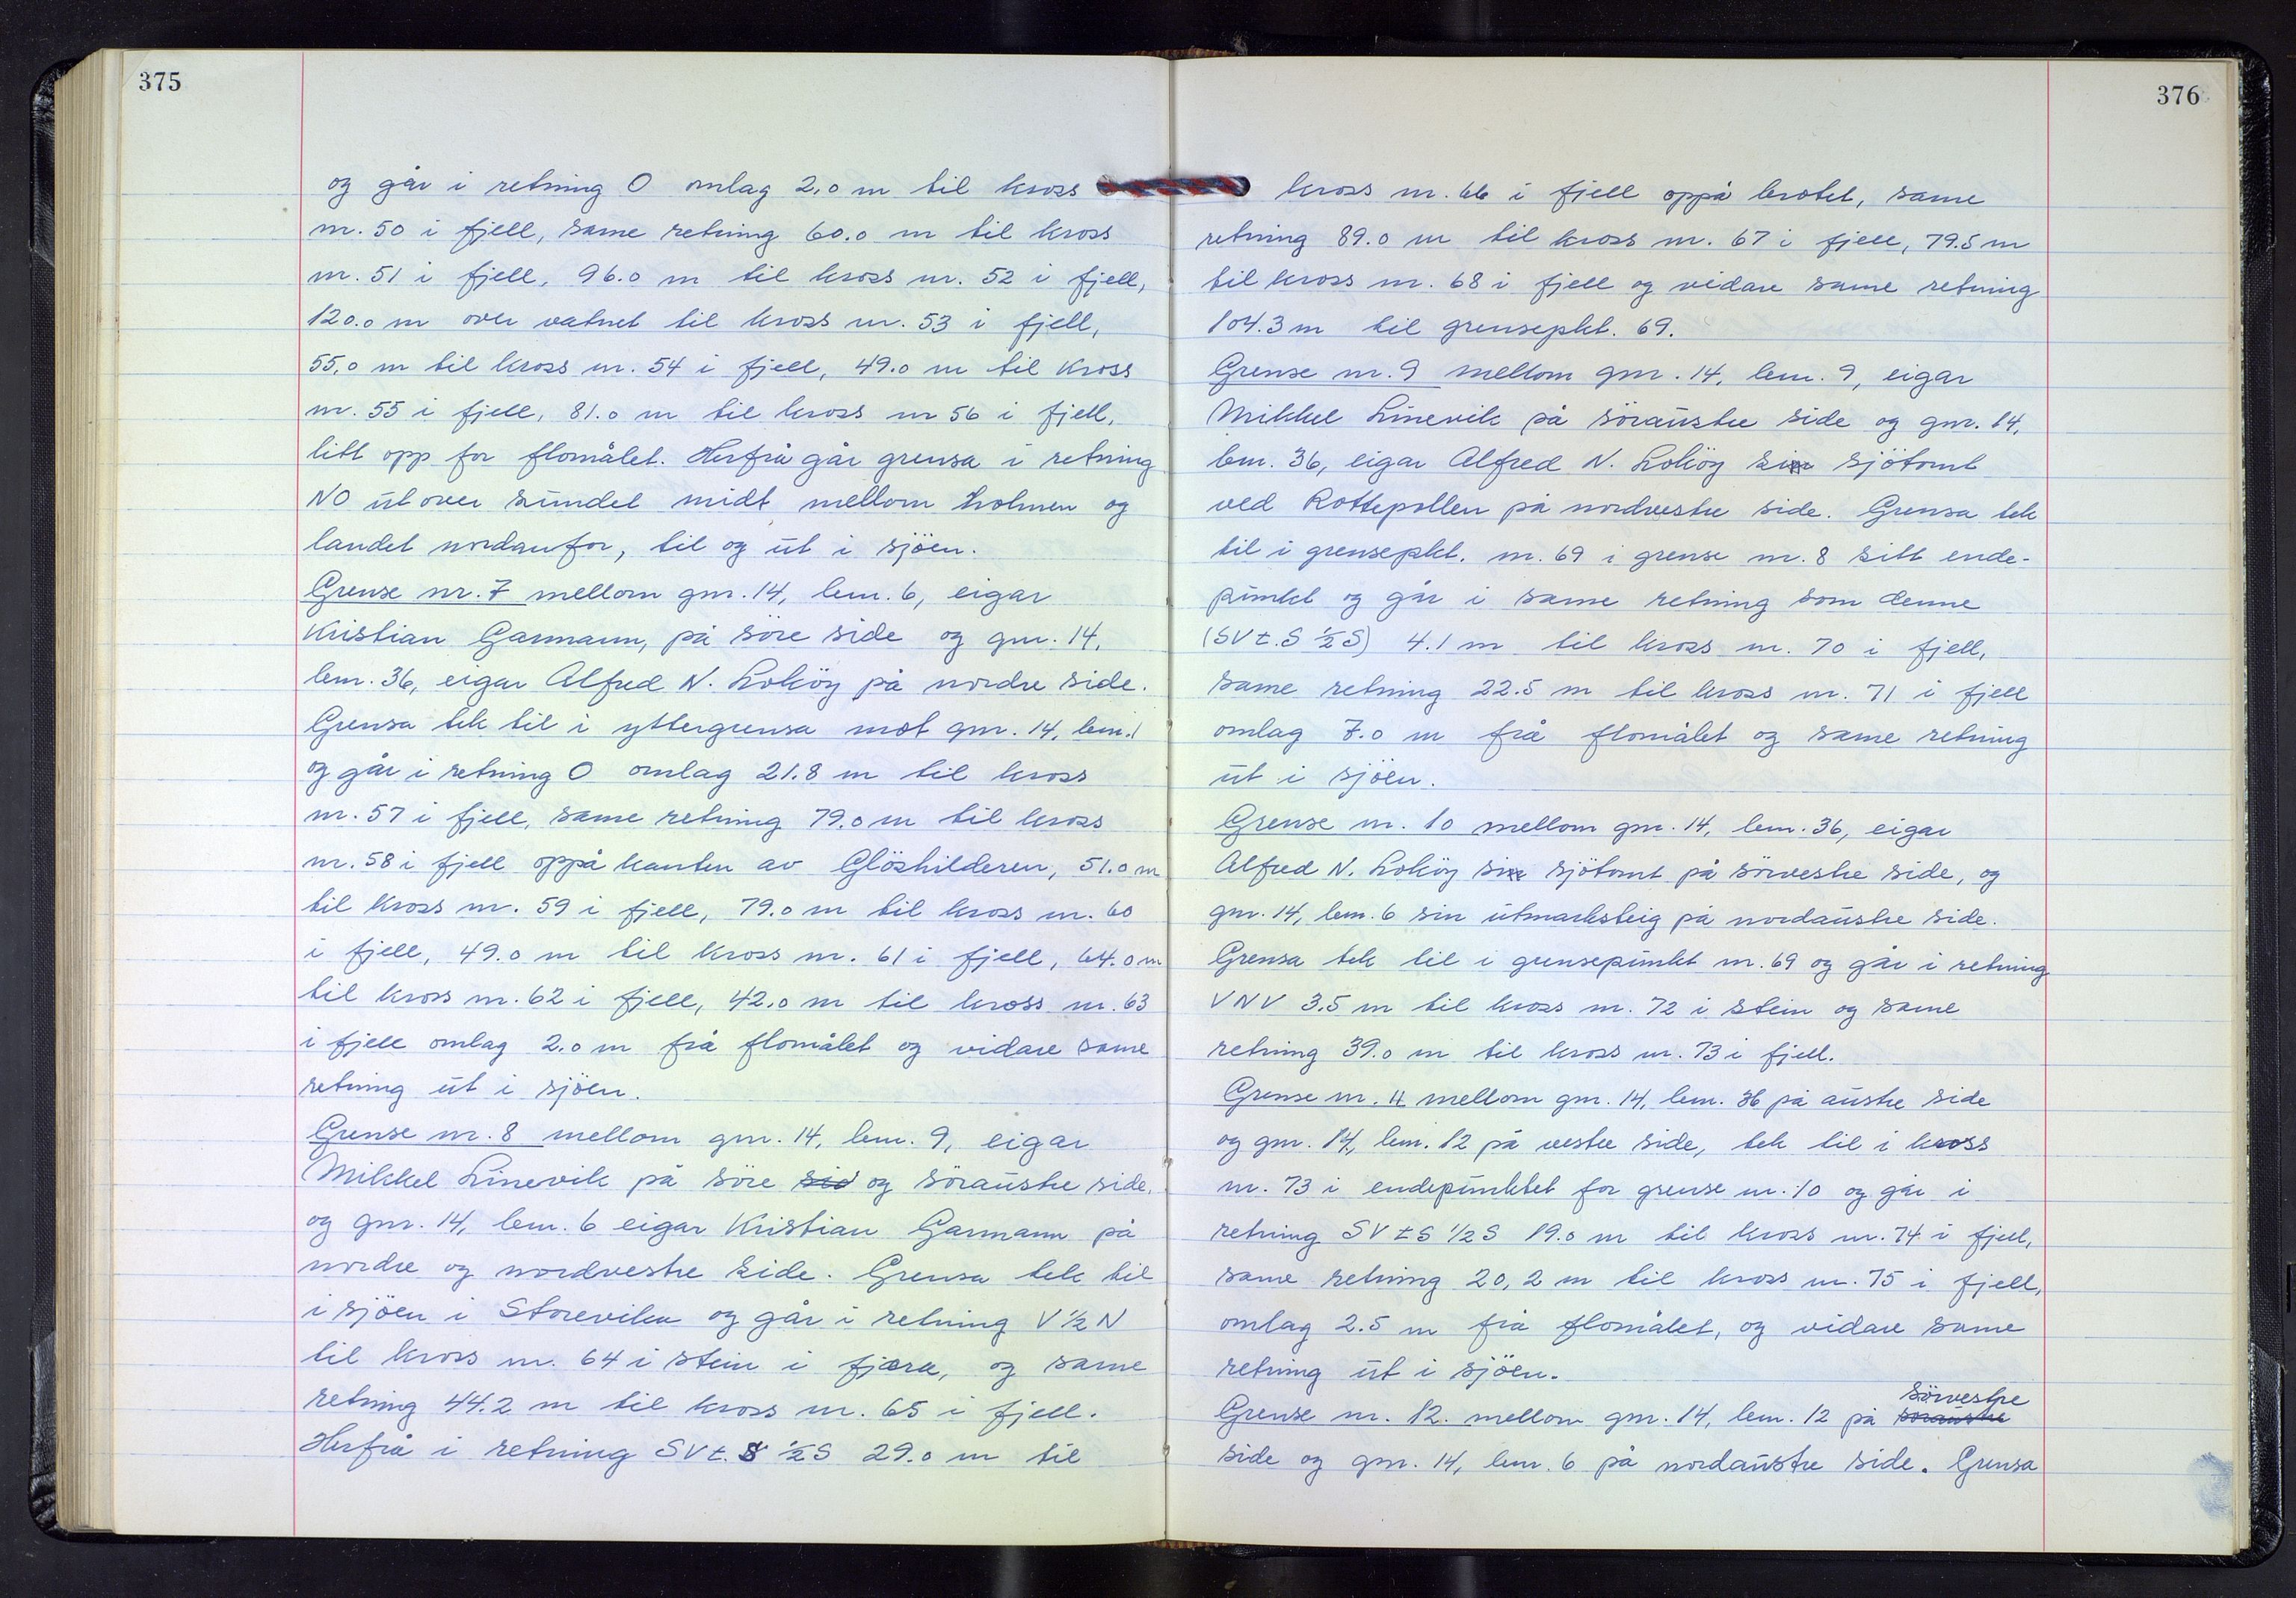 375
og går i retning O omlag 2,0 m til kross
nr. 50 i fjell, same retning 60.0 m til kross
nr. 51 i fjell, 96.0 m til kross nr. 52 i fjell,
120.0 m over vatnet til kross nr. 53 i fjell,
55,0 m til kross nr. 54 i fjell, 49.0 m til kross
nr. 55 i fjell, 81.0 m til kross nr 56 i fjell,
litt opp for flomålet. Herfrå går grensa i retning
NO ut over sundet midt mellom holmen og
landet nordanfor, til og ut i sjöen.
Grense nr. 7 mellom gnr. 14, bnr. 6, eigar
Kristian Garmann, på söre side og gnr. 14,
bnr. 36, eigar Alfred N. Loköy på nordre side.
Grensa tek til i yttergrensa mot gnr. 14, bnr. 1
og går i retning O omlag 21.8 m til kross
nr. 57 i fjell, same retning 79.0 m til kross
nr. 58 i fjell oppå kanten av Glöshilderen, 51.0 m
til kross nr. 59 i fjell, 79.0 m til kross nr. 60
i fjell, 49.0 m til kross nr. 61 i fjell, 64.0 m
til kross nr. 62 i fjell, 42.0 m til kross nr. 63
i fjell omlag 2.0 m frå flomålet og vidare same
retning ut i sjöen.
Grense nr. 8 mellom gnr. 14, bnr. 9, eigar
Mikkel Linevik på söre sid og söraustre side,
og gnr. 14, bnr. 6 eigar Kristian Garmann på
nordre og nordvestre side. Grensa tek til
i sjöen i Storevika og går i retning V ½ N
til kross nr. 64 i stein i fjæra, og same
retning 44.2 m til kross nr. 65 i fjell.
Herfrå i retning SV t. S ½ S 29.0 m til
376
kross nr. 66 i fjell oppå brotet, same
retning 89.0 m til kross nr. 67 i fjell, 79.5 m
til kross nr. 68 i fjell og vidare same retning
104.3 m til grensepkt. 69.
Grense nr. 9 mellom gnr. 14, bnr. 9, eigar
Mikkel Linevik på söraustre side og gnr. 14,
bnr. 36, eigar Alfred N. Loköy si sjötomt
ved Rottepollen på nordvestre side. Grensa tek
til i grensepkt. nr. 69 i grense nr. 8 sitt ende-
punkt og går i same retning som denne
(SV t. S ½ S) 4.1 m til kross nr. 70 i fjell,
same retning 22.5 m til kross nr. 71 i fjell
omlag 7.0 m frå flomålet og same retning
ut i sjöen.
Grense nr. 10 mellom gnr. 14, bnr. 36, eigar
Alfred N. Loköy si sjötomt på sörvestre side, og
gnr. 14, bnr. 6 sin utmarksteig på nordaustre side.
Grensa tek til i grensepunkt nr. 69 og går i retning
VNV 3.5 m til kross nr. 72 i stein og same
retning 39.0 m til kross nr. 73 i fjell.
Grense nr. 11 mellom gnr. 14, bnr. 36 på austre side
og gnr. 14, bnr. 12 på vestre side, tek til i kross
nr. 73 i endepunktet for grense nr. 10 og går i
retning SV t S ½ S 19.0 m til kross nr. 74 i fjell,
same retning 20,2 m til kross nr. 75 i fjell,
omlag 2.5 m frå flomålet, og vidare same
retning ut i sjöen.
Grense nr. 12. mellom gnr. 14, bnr. 12 på söraustre sörvestre
side og gnr. 14, bnr. 6 på nordaustre side. Grensa